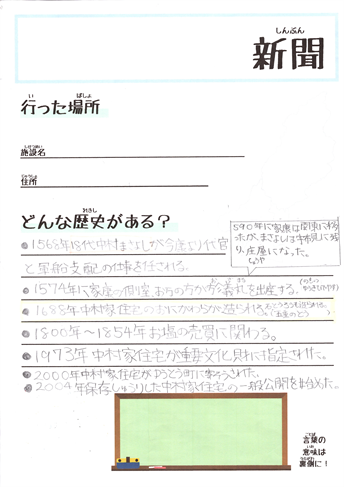 しんぶん
新聞
い ばしょ
行った場所
しせつめい
施設名
じゅうしょ
住所
れきし
どんな歴史がある？
590年に家康は関東に移
ったが、まさよしは中村に残
り庄屋になった。
1568年18代中村まさよしが今
代官
と軍船支配の仕事を任される。
1574年に家康の側室、おまんの方が
義
を出産する。
1688年中村家住宅の
1800年〜1854年お塩の売買に関わる。
1973年中村家住宅が重要文化財に指定された。
2000年中村家住宅がゆうとう町に寄ふされた。
2004年保存しゅうりした中村家住宅の一般公開を始めた。
ことば
言葉の
いみ
意味は
うらがわ
裏側に！